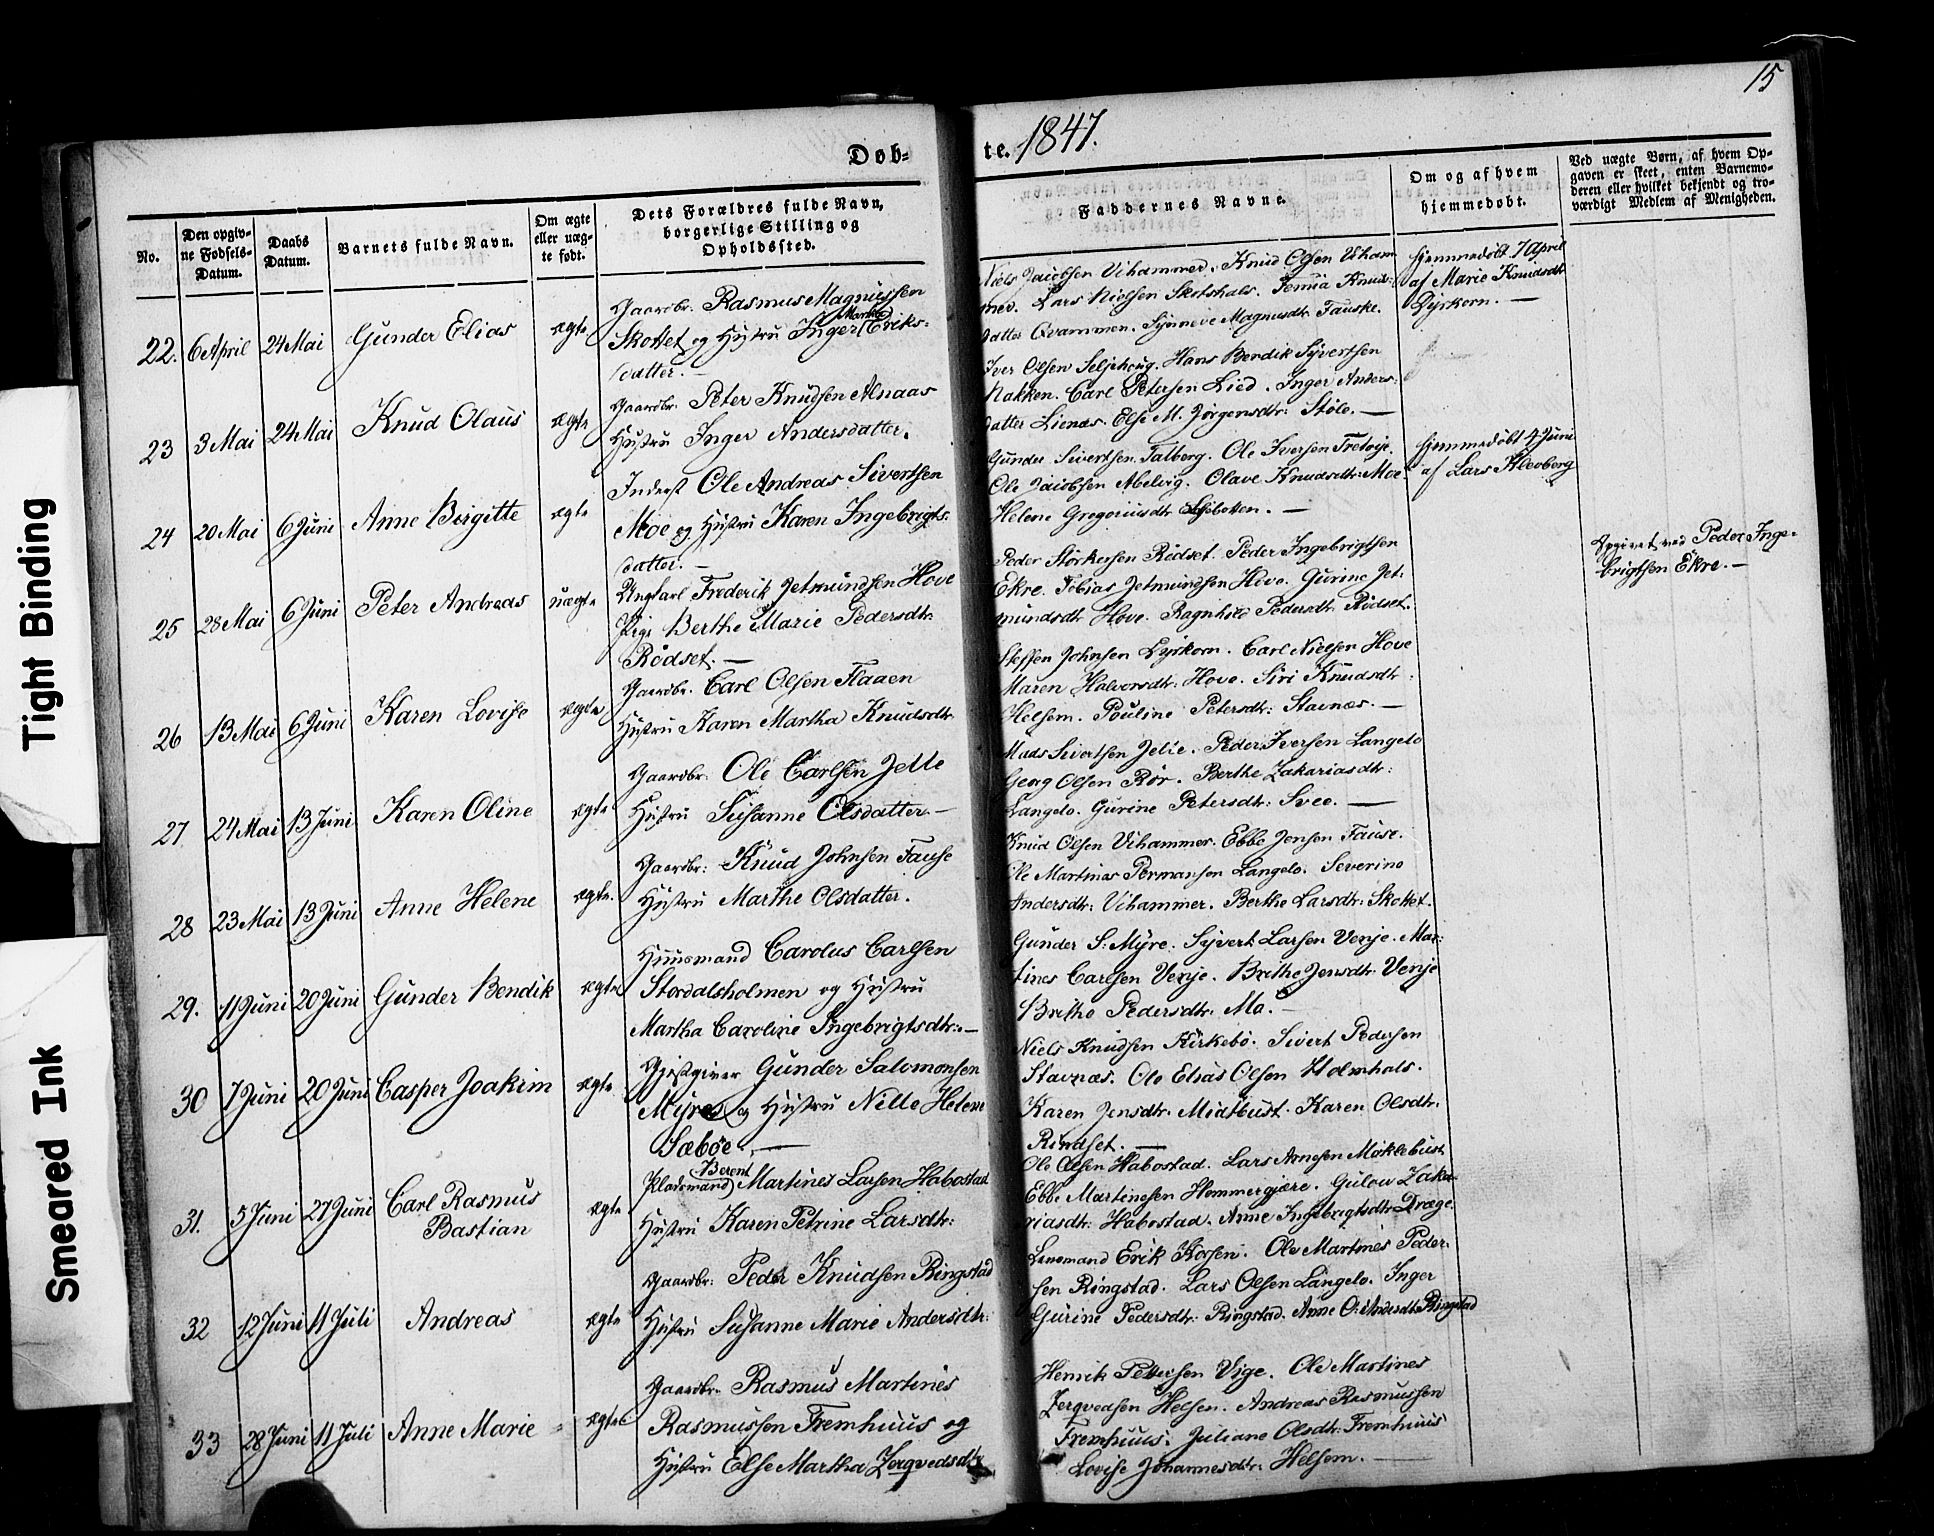 15
Døb-
te. 1847.
No.
Den opgiv-
ne Fødsels-
Datum.
Daabs
Datum.
Barnets fulde Navn.
Om ægte
eller uæg-
te født.
Dets Forældres fulde Navn,
borgerlige Stilling og
Opholdssted.
Faddernes Navne.
Om og af hvem
hjemmedøbt.
Ved uægte Børn, af hvem Op-
gaven er skeet, enten Barnemo-
deren eller hvilket bekjendt og tro-
værdigt Medlem af Menigheden.
22. 6 April 24 Mai Gunder Elias ægte
Gaardbr. Rasmus Magnussen
Skottet og Hustru Inger Marthe Eriks-
datter. —
Niels Jacobsen Vihammer. Knud Olsen Viham
mer. Lars Nielsen Skotshals. Knuds-
datter Qvammen. Synneve Magnusdtr Fauske.
Hjemmedøbt 7 April
af Marie Knudsdtr
Dyrkorn. —
23 3 Mai 24 Mai Knud Olaus ægte
Gaardbr. Peter Knudsen Alnaas
Hustru Inger Andersdatter.
Iver Olsen Seljehoug. Hans Bendik Syvertsen
Nakken. Carl Petersen Lied. Inger Anders-
datter Lienæs. Else M. Jørgensdtr: Støle. —
24 20 Mai 6 Juni Anne Birgitte ægte
Inderst Ole Andreas Sivertsen
Moe og Hustru Karen Ingebrigts-
datter. —
Gunder Sivertsen Talberg. Ole Iversen
Ole Jacobsen Melvig. Olave Knudsdtr: Moe
Helene Gregoriusdtr —
Hjemmedøbt 4 Juni
af Lars Klevberg
25 28 Mai 6 Juni Peter Andreas uægte
Ungkarl Frederik Jetmundsen Hove
Pige Berthe Marie Pedersdtr:
Rødset. —
Peder Størkersen Rødset. Peder Ingebrigtsen
Ekre. Tobias Jetmundsen Hove. Gurine Jet-
mundsdtr Hove. Ragnhild Pedersdtr Rødset.
Opgivet ved Peder Inge-
brigtsen Ekre. —
26 13 Mai 6 Juni Karen Lovise ægte
Gaardbr. Carl Olsen Flaaen
Hustru Karen Martha Knudsdtr
Steffen Johnsen Dyrkorn. Carl Nielsen Hove
Maren Halvorsdtr: Hove. Siri Knudsdtr:
Helsem. Pouline Petersdtr: Stavnæs. —
27 24 Mai 13 Juni Karen Oline ægte
Gaardbr: Ole Carlsen Jelle
Hustru Susanne Olsdatter —
Mads Sivertsen Jelle. Peder Iversen Langelo
Georg Olsen Rør. Berthe Zakariasdtr:
Langelo. Gurine Petersdtr: Svee. —
28 23 Mai 13 Juni Anne Helene ægte.
Gaardbr: Knud Johnsen Fause
Hustru Marthe Olsdatter.
Knud Olsen Vihammer. Ebbe Jensen Fause.
Ole Martinus Permansen Langelo. Severine
Andersdtr: Vihammer. Berthe Larsdtr: Skottet.
29. 11 Juni 20 Juni Gunder Bendik ægte
Huusmand Carolus Carlsen
Stordalsholmen og Hustru
Martha Caroline Ingebrigtsdtr: —
Gunder S. Myre. Syvert Larsen Venje. Mar-
tines Carlsen Venje. Brithe Jensdtr: Venje
Brithe Pedersdtr: Mo. —
30 7 Juni 20 Juni Casper Joakim ægte
Gjestgiver Gunder Salomonsen
Myre og Hustru Nille Helene
Sæbøe. —
Niels Knudsen Kirkebø. Sivert Pedersen
Stavnæs. Ole Elias Olsen Holmhals.
Karen Jensdtr. Midtbust. Karen Olsdtr.
Rindset. —
31. 5 Juni 27 Juni Carl Rasmus
Bastian ægte
Pladsmand Berent Martines Larsen Habostad
Hustru Karen Petrine Larsdtr:
Ole Olsen Habostad. Lars Arnesen Møklebust
Ebbe Martinesen Hammergjære. Gulow Zaka-
riasdtr: Habostad. Anne Ingebrigtsdtr Dræge.
32 12 Juni 11 Juli Andreas ægte
Gaardbr: Peder Knudsen Ringstad
Hustru Susanne Marie Andersdtr:
Lensmand Erik Korsen. Ole Martines Peder-
sen Ringstad. Lars Olsen Langelo. Inger
Gurine Pedersdtr: Ringstad. Anne Andersdtr Ringstad
33 28 Juni 11 Juli Anne Marie ægte
Gaardbr. Rasmus Martines
Rasmussen Fremhuus og
Hustru Else Martha Zerqvedsdtr
Henrik Pettersen Vige. Ole Martines
Zerqvedsen Helsen. Andreas Rasmussen
Fremhuus. Juliane Olsdtr: Fremhuus
Lovise Johannesdtr: Helsem. —
Tight Binding
Smeared Ink